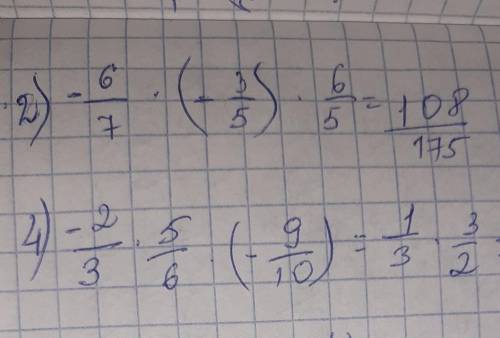 2) -6/7 · (-3/5) · 6/5 = 108/175
4) -2/3 · 5/6 · (-9/10) = 1/3 · 3/2